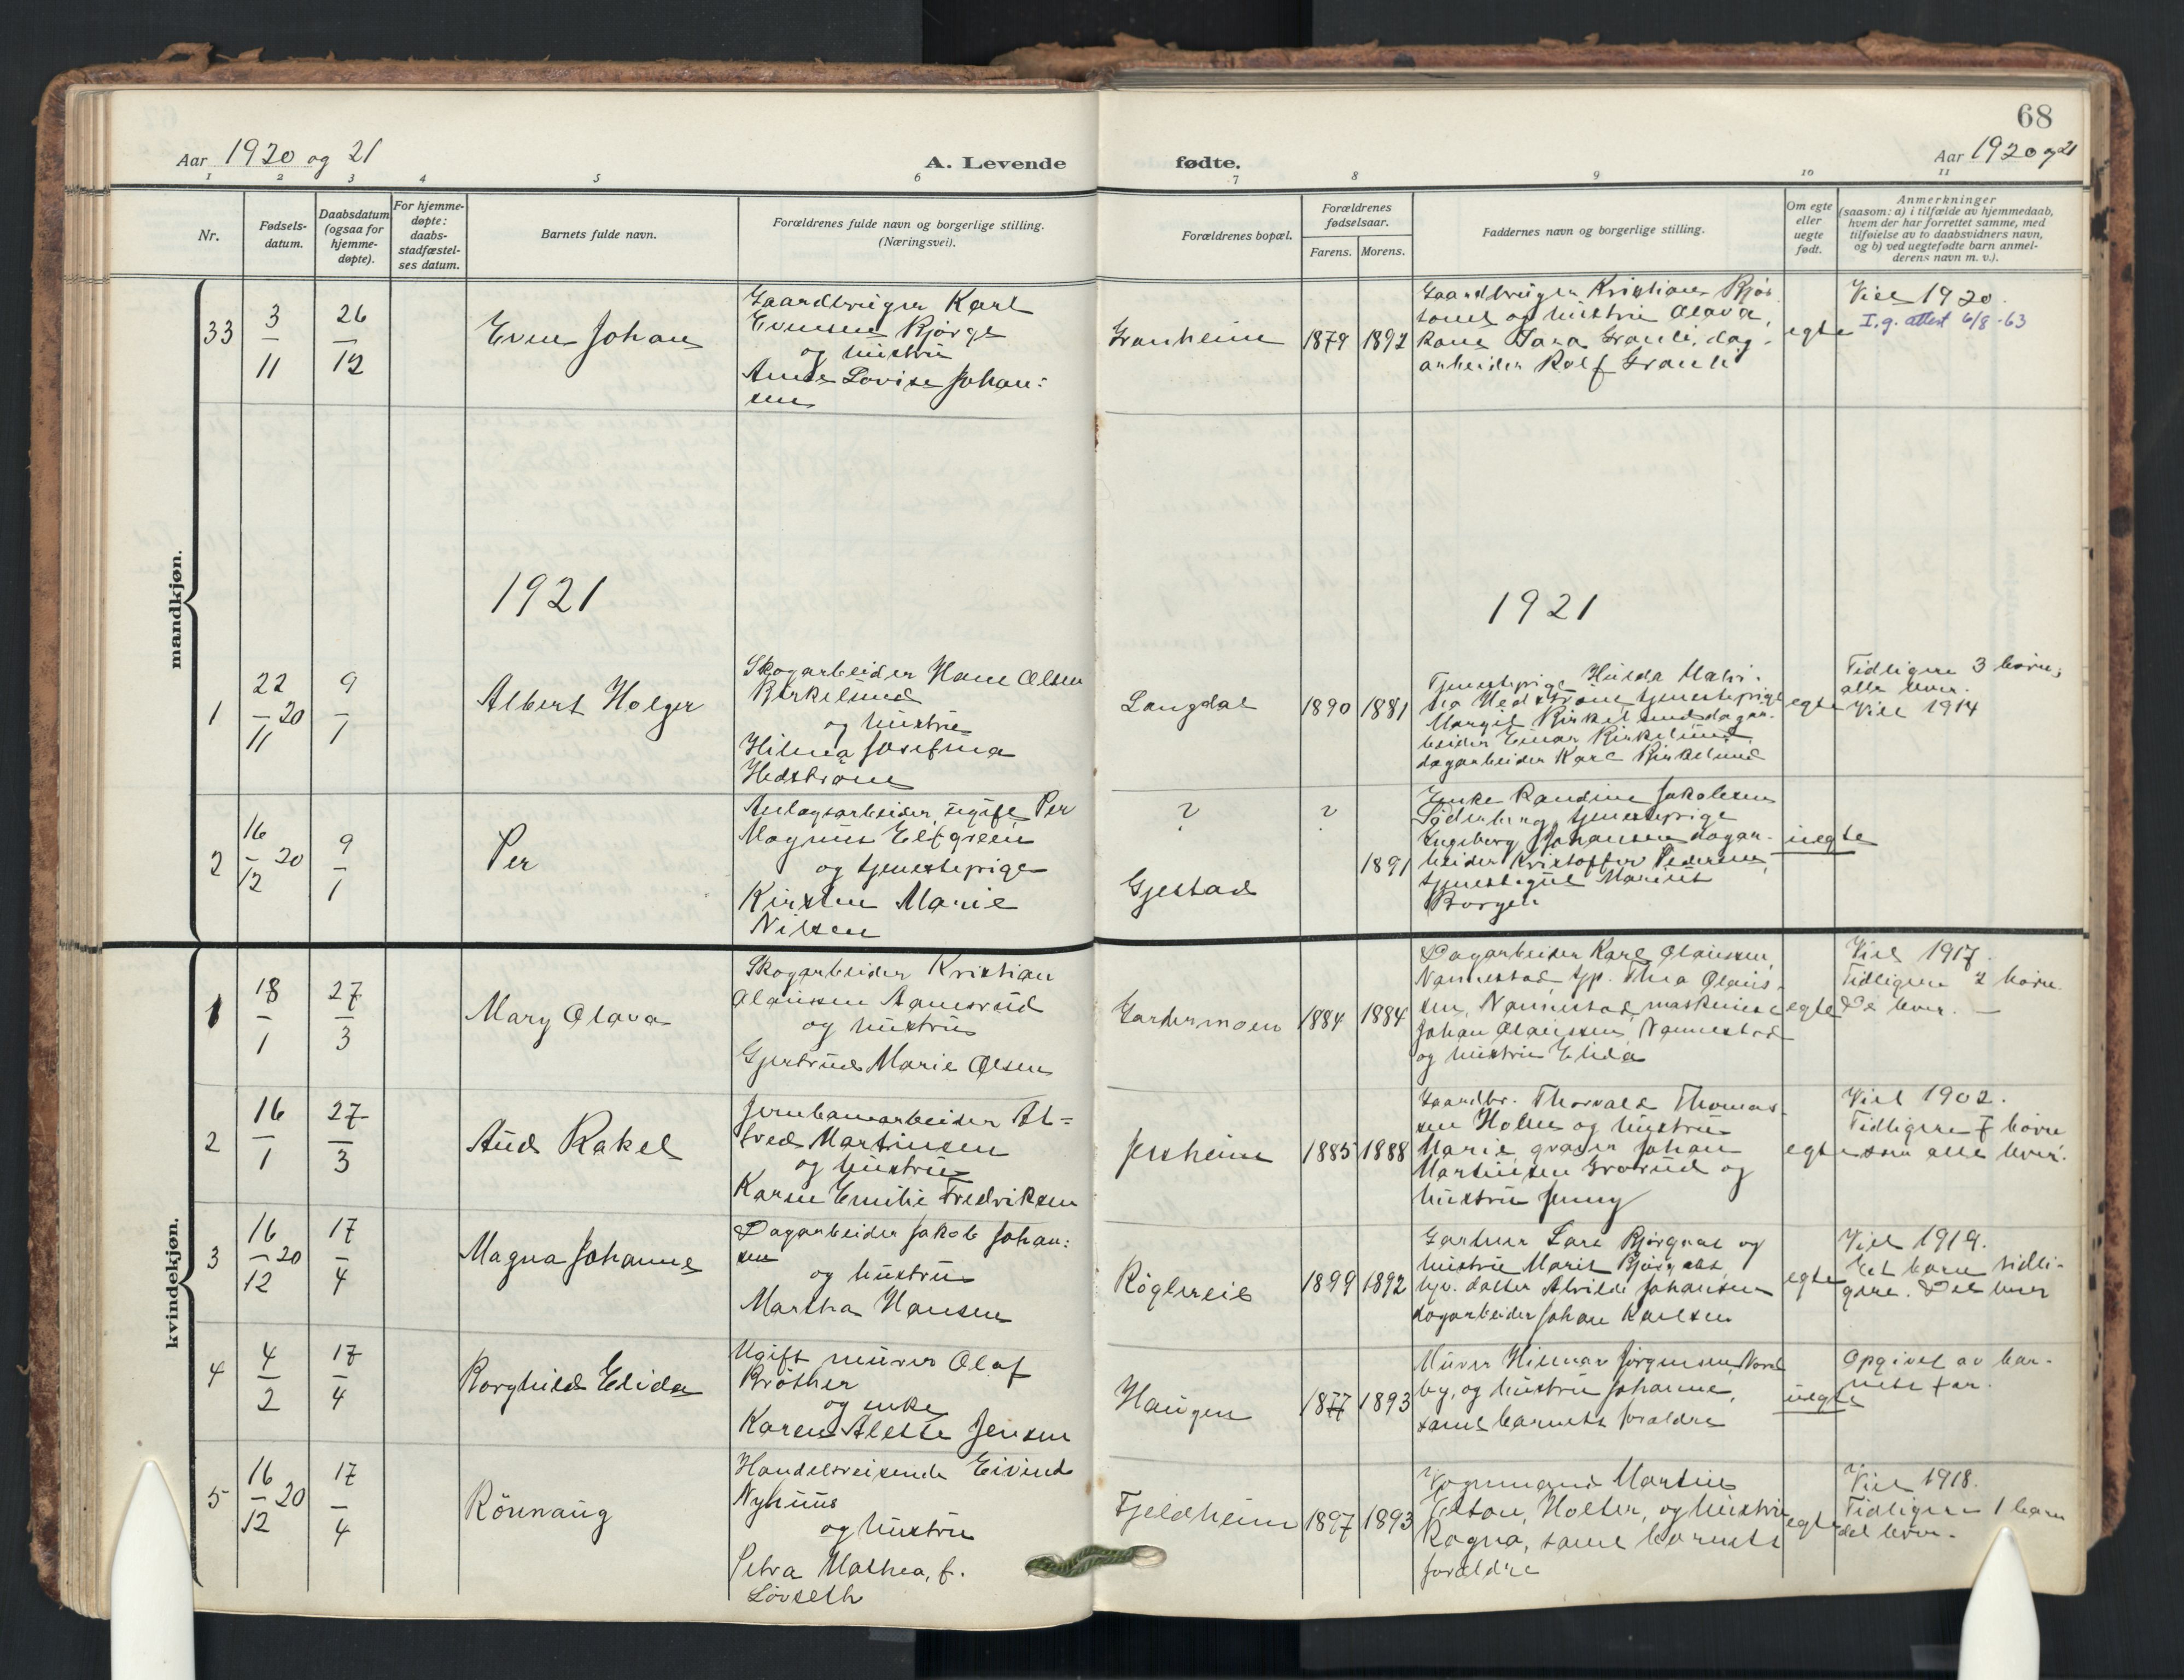 68
Aar 1920 og 21
A. Levende fødte.
Aar 1920 og 21
1 2 3 4 5 6 7 8 9 10 11
Nr.
Fødsels-
datum.
Daabsdatum
(ogsaa for
hjemme-
døpte).
For hjemme-
døpte:
daabs-
stadfæstel-
ses datum.
Barnets fulde navn.
Forældrenes fulde navn og borgerlige stilling.
(Næringsvei).
Forældrenes bopæl.
Forældrenes
fødselsaar.
Farens. Morens.
Faddernes navn og borgerlige stilling.
Om egte
eller
uegte
født.
Anmerkninger
(saasom: a) i tilfælde av hjemmedaab,
hvem der har forrettet samme, med
tilføielse av to daabsvidners navn,
og b) ved uegtefødte barn anmel-
derens navn m. v.).
mandkjøn.
33
3
11
26
12
Even Johan
Gaardbruger Karl
Evensen Bjørge
og hustru
Anna Lovise Johan:
sen
Granheim
1879
1892
Gaardbruger Kristian
og hustru Olava,
Granli, dag-
arbeider Rolf Granli
egte
Viet 1920.
I.g. attest 6/8-63
1921
1921
1
22
11
20
9
1
Albert Holger
Skogarbeider Hans Olsen
Birkelund
og hustru
Hilma Josefina
Hedström
Langdal
1890
1881
Tjenestepige Hulda Mati-
da Hedström, tjenestepige
Margit Birkelund dagar-
beider Einar Birkelund
dagarbeider Karl Birkelund
egte
Tidligere 3 børn,
alle lever.
Viet 1914
2
16
12
20
9
1
Per
Anlægsarbeider, ugift Per
Magnus Elfgreen
og tjenestepige
Kirsten Marie
Nilsen
?
Gjestad
?
1891
Enke Randine Jakobsen
Søderberg, tjenestepige
Ingeborg Johansen dagar-
beider Kristoffer Pedersen,
tjenestegut Marius
Borgen
uegte
kvindekjøn.
1
18
1
27
3
Mary Olava
Skogarbeider Kristian
Olaussen Aamodrud
og hustru
Gjertrud Marie Olsen
Gardermoen
1884
1884
Dagarbeider Karl Olaussen,
Nannestad, tjp. Thea Olaus-
sen, Nannestad, maskinist
Johan Olaussen, Nannestad
og hustru Elida
egte
Viet 1917.
Tidligere 2 børn.
De lever. —
2
16
1
27
3
Aud Rakel
Jernbanearbeider Al=
fred Martinsen
og hustru
Karen Emilie Fredriksen
Jessheim
1885
1888
Gaardbr. Thorvald Thomas-
sen Holm og hustru
Marie, graver Johan
Martinsen Grorud og
hustru Jenny
egte
Viet 1902.
Tidligere 7 børn
som alle lever.
3
16
12
20
17
4
Magna Johanne
Dagarbeider Jakob Johan:
sen
og hustru
Martha Hansen
Röglereie
1899
1892
Gartner Lars Bjørgaas og
hustru Marit Bjørgaas
hjv. datter Alvilde Johansen
dagarbeider Johan Karlsen
egte
Viet 1919.
Et barn tidli-
gere. Det lever
4
4
2
17
4
Borghild Elida
Ugift murer Olaf
Bröther
og enke
Karen Alette Jensen
Haugen
1877
1893
Murer Hilmar Jørgensen, Nord-
by, og hustru Johanne,
samt barnets forældre
uegte
Opgivet av bar-
nets far.
5
16
12
20
17
4
Rönnaug
Handelsreisende Eivind
Nyhuus
og hustru
Petra Mathea, f.
Løvseth
Fjeldheim
1897
1893
Vognmand Martin
Holter, og hustru
Ragna, samt barnets
forældre
egte
Viet 1918.
Tidligere 1 barn
det lever.